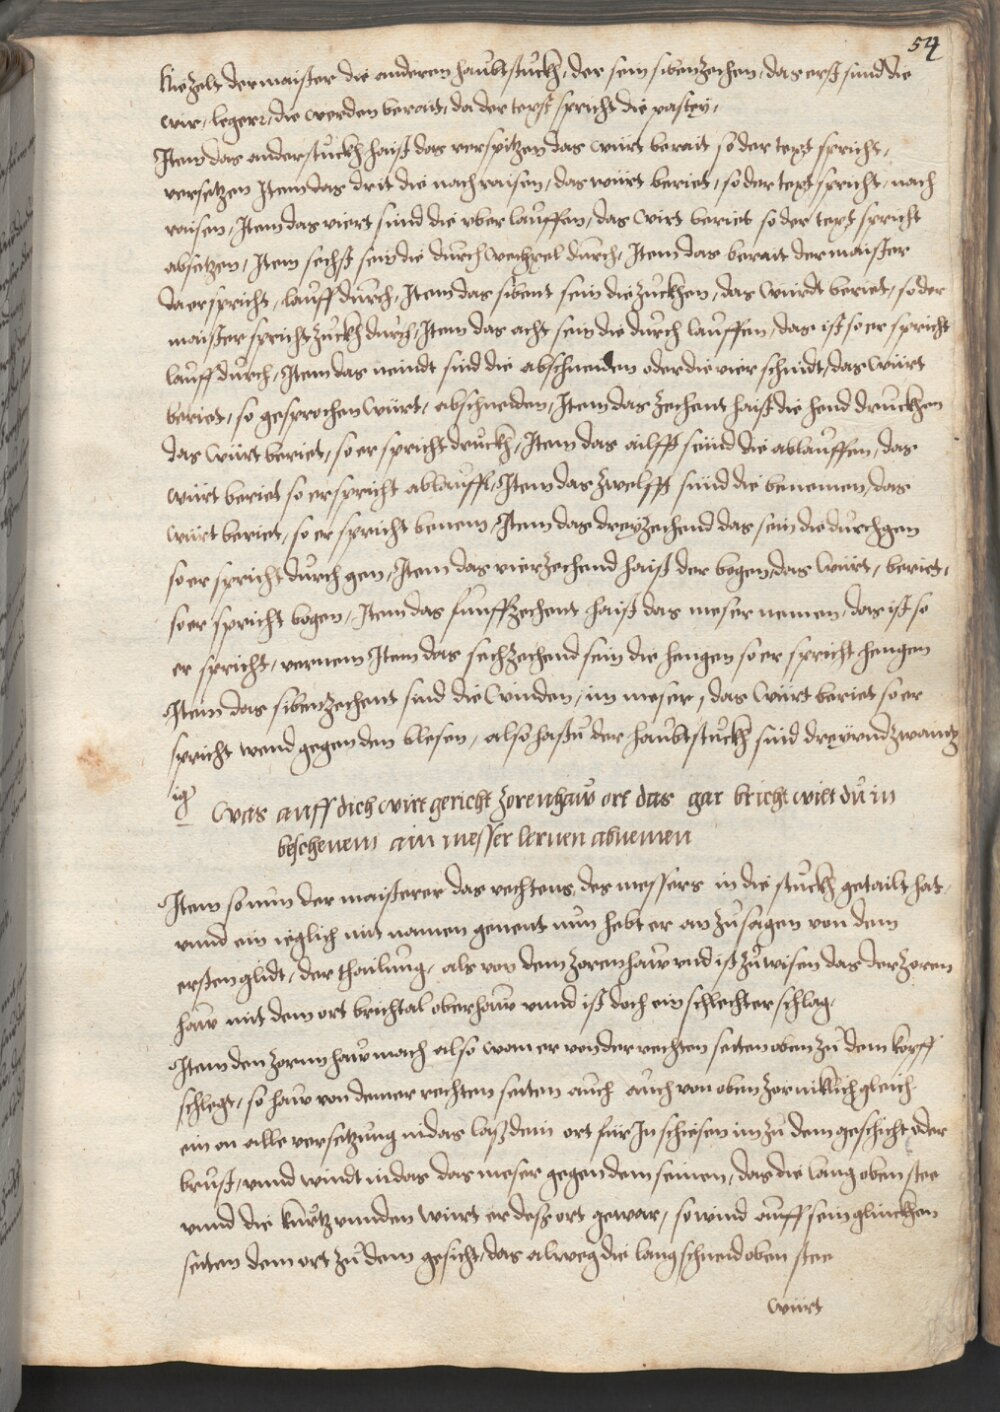 54
Hie zelt der maister die anderen haubtstuckh, der sein sibenzechen, das erst sind die
vir, leger, die werden berait, da der text spricht die pastey,
Item das ander stuckh haist das verspitzen das würt berait so der text spricht,
versetzen Item das drit die nachraisen, das würt beriet, so der text spricht, nach
raisen, Item das viert sind die vberlauffen, das wirt beriet so der text spricht
absetzen, Item sechst sein die durchwechxel durch, Item das berait der maister
da er spricht, lauff durch, Item das sibent sein die zuckhen, das würdt beriet, so der
maister spricht zuckh durch, Item das acht sein die durch lauffen, das ist so er spricht
lauff durch, Item das neindt sind die abschneiden oder die vier schnidt, das würt
beriet, so gesprochen würt, abschneiden, Item das zechent haist die hend druckhen
das würt beriet, so er spricht druckh, Item das ailfft seind die ablauffen, das
würt beriet so er spricht ablauffs, Item das zwelfft sind die benemen, das
würt beriet, so er spricht benem, Item das dreyzechend das sein die durchgen
so er spricht durch gen, Item das vierzechend haist der bogen, das würt, beriet,
so er spricht bogen, Item das funffzechent haist das meser nemen, das ist so
er spricht, vernem Item das sechzechend sein die hengen so er spricht hengen
Item das sibenzechent sind die winden, im meser, das würt beriet so er
spricht wend gegen den blesen, also hastu der haubtstuckh sind dreyundzwantz
ig
Was auff dich wirt gericht zorenhaw ort das gar bricht wilt du in
beschenem ain messer lernen abnemen
Item so nun der maisterer das rechtens, des messers in die stuckh getailt hat,
vnnd ein ieglich mit namen genent nun hebt er an zu sagen von dem
ersten glidt, der thailung, als von dem zorenhaw vnd ist zu wisen das der zoren
haw mit dem ort bricht al oberhaw vnnd ist doch ein schlechter schlag,
Item den zornnhaw mach also wan er von der rechten seiten oben zu dem kopff
schlegt, so haw von deiner rechten seiten auch auch von oben zorniklich gleich
ein on alle versetzung indas lasz dein ort für In schiesen im zu dem geschicht oder
brust, vnnd windt indas das meser gegen dem seinen, das die lang oben stee
vnnd die kurtz vnnden würt er desz ort gewar, so wind auff sein glinckhen
seiten dem ort zu dem gesicht, das alweg die lang schneid oben stee
würt